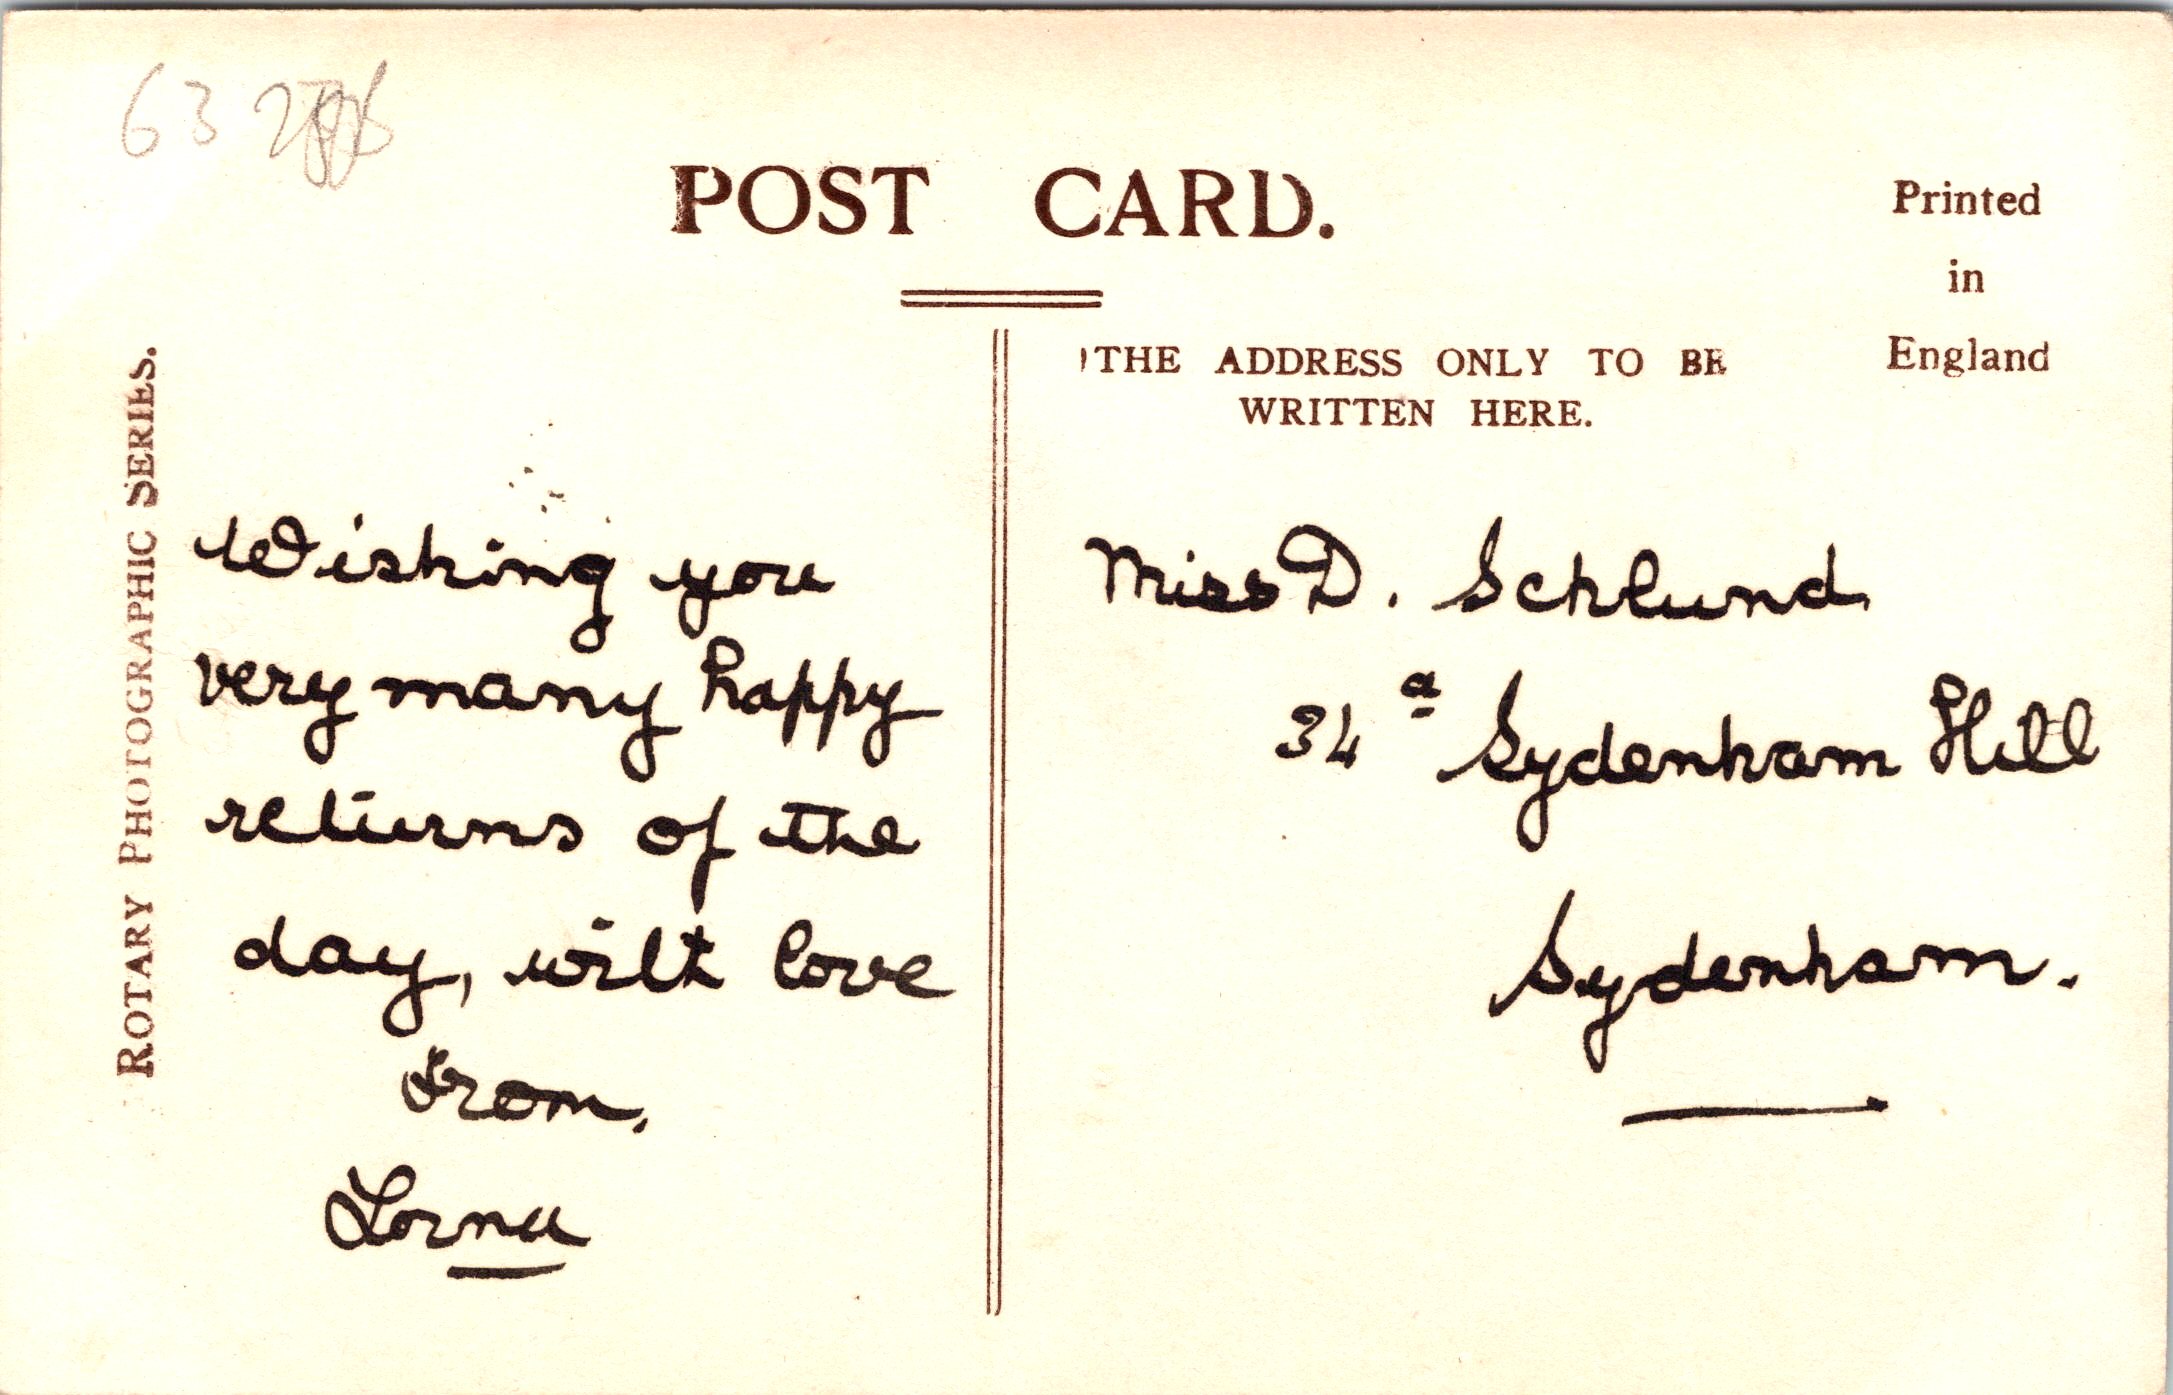 63
POST CARD.
Printed
in
England
THE ADDRESS ONLY TO BE
WRITTEN HERE.
ROTARY PHOTOGRAPHIC SERIES.
Wishing you
very many happy
returns of the
day, with love
From,
Lorna
Miss D. Schlund
34a Sydenham Hill
Sydenham.